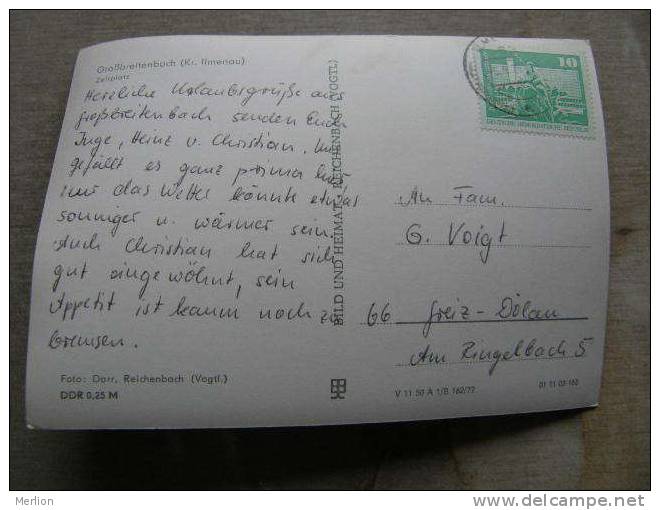 Großbreitenbach (Kr. Ilmenau)
Zeltplatz
Herzliche Urlaubsgrüße aus
Großbreitenbach senden Euch
Inge, Heinz u. Christian. Uns
gefällt es ganz prima hier
nur das Wetter könnte etwas
sonniger u. wärmer sein.
Auch Christian hat sich
gut eingewöhnt, sein
Appetit ist kaum noch zu
bremsen.
Foto: Darr, Reichenbach (Vogtl.)
DDR 0,25 M
BILD UND HEIMAT REICHENBACH (VOGTL)
10
DEUTSCHE DEMOKRATISCHE REPUBLIK
An Fam.
G. Voigt
66 Greiz-Dölau
Am Ringelbach 5
V 11 50 A 1/B 162/77
01 11 03 163
Merlion
www.delcampe.net